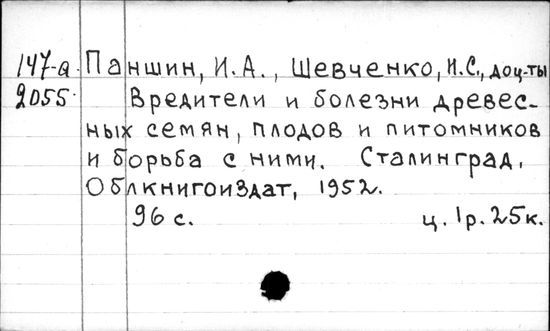 147-а Паншин, И.А., Шевченко, И.С., доц-ты
2055. Вредители и болезни древес-
ных семян, плодов и питомников
и борьба с ними. Сталинград,
Облкнигоиздат, 1952.
96 с. ц. 1р. 25к.